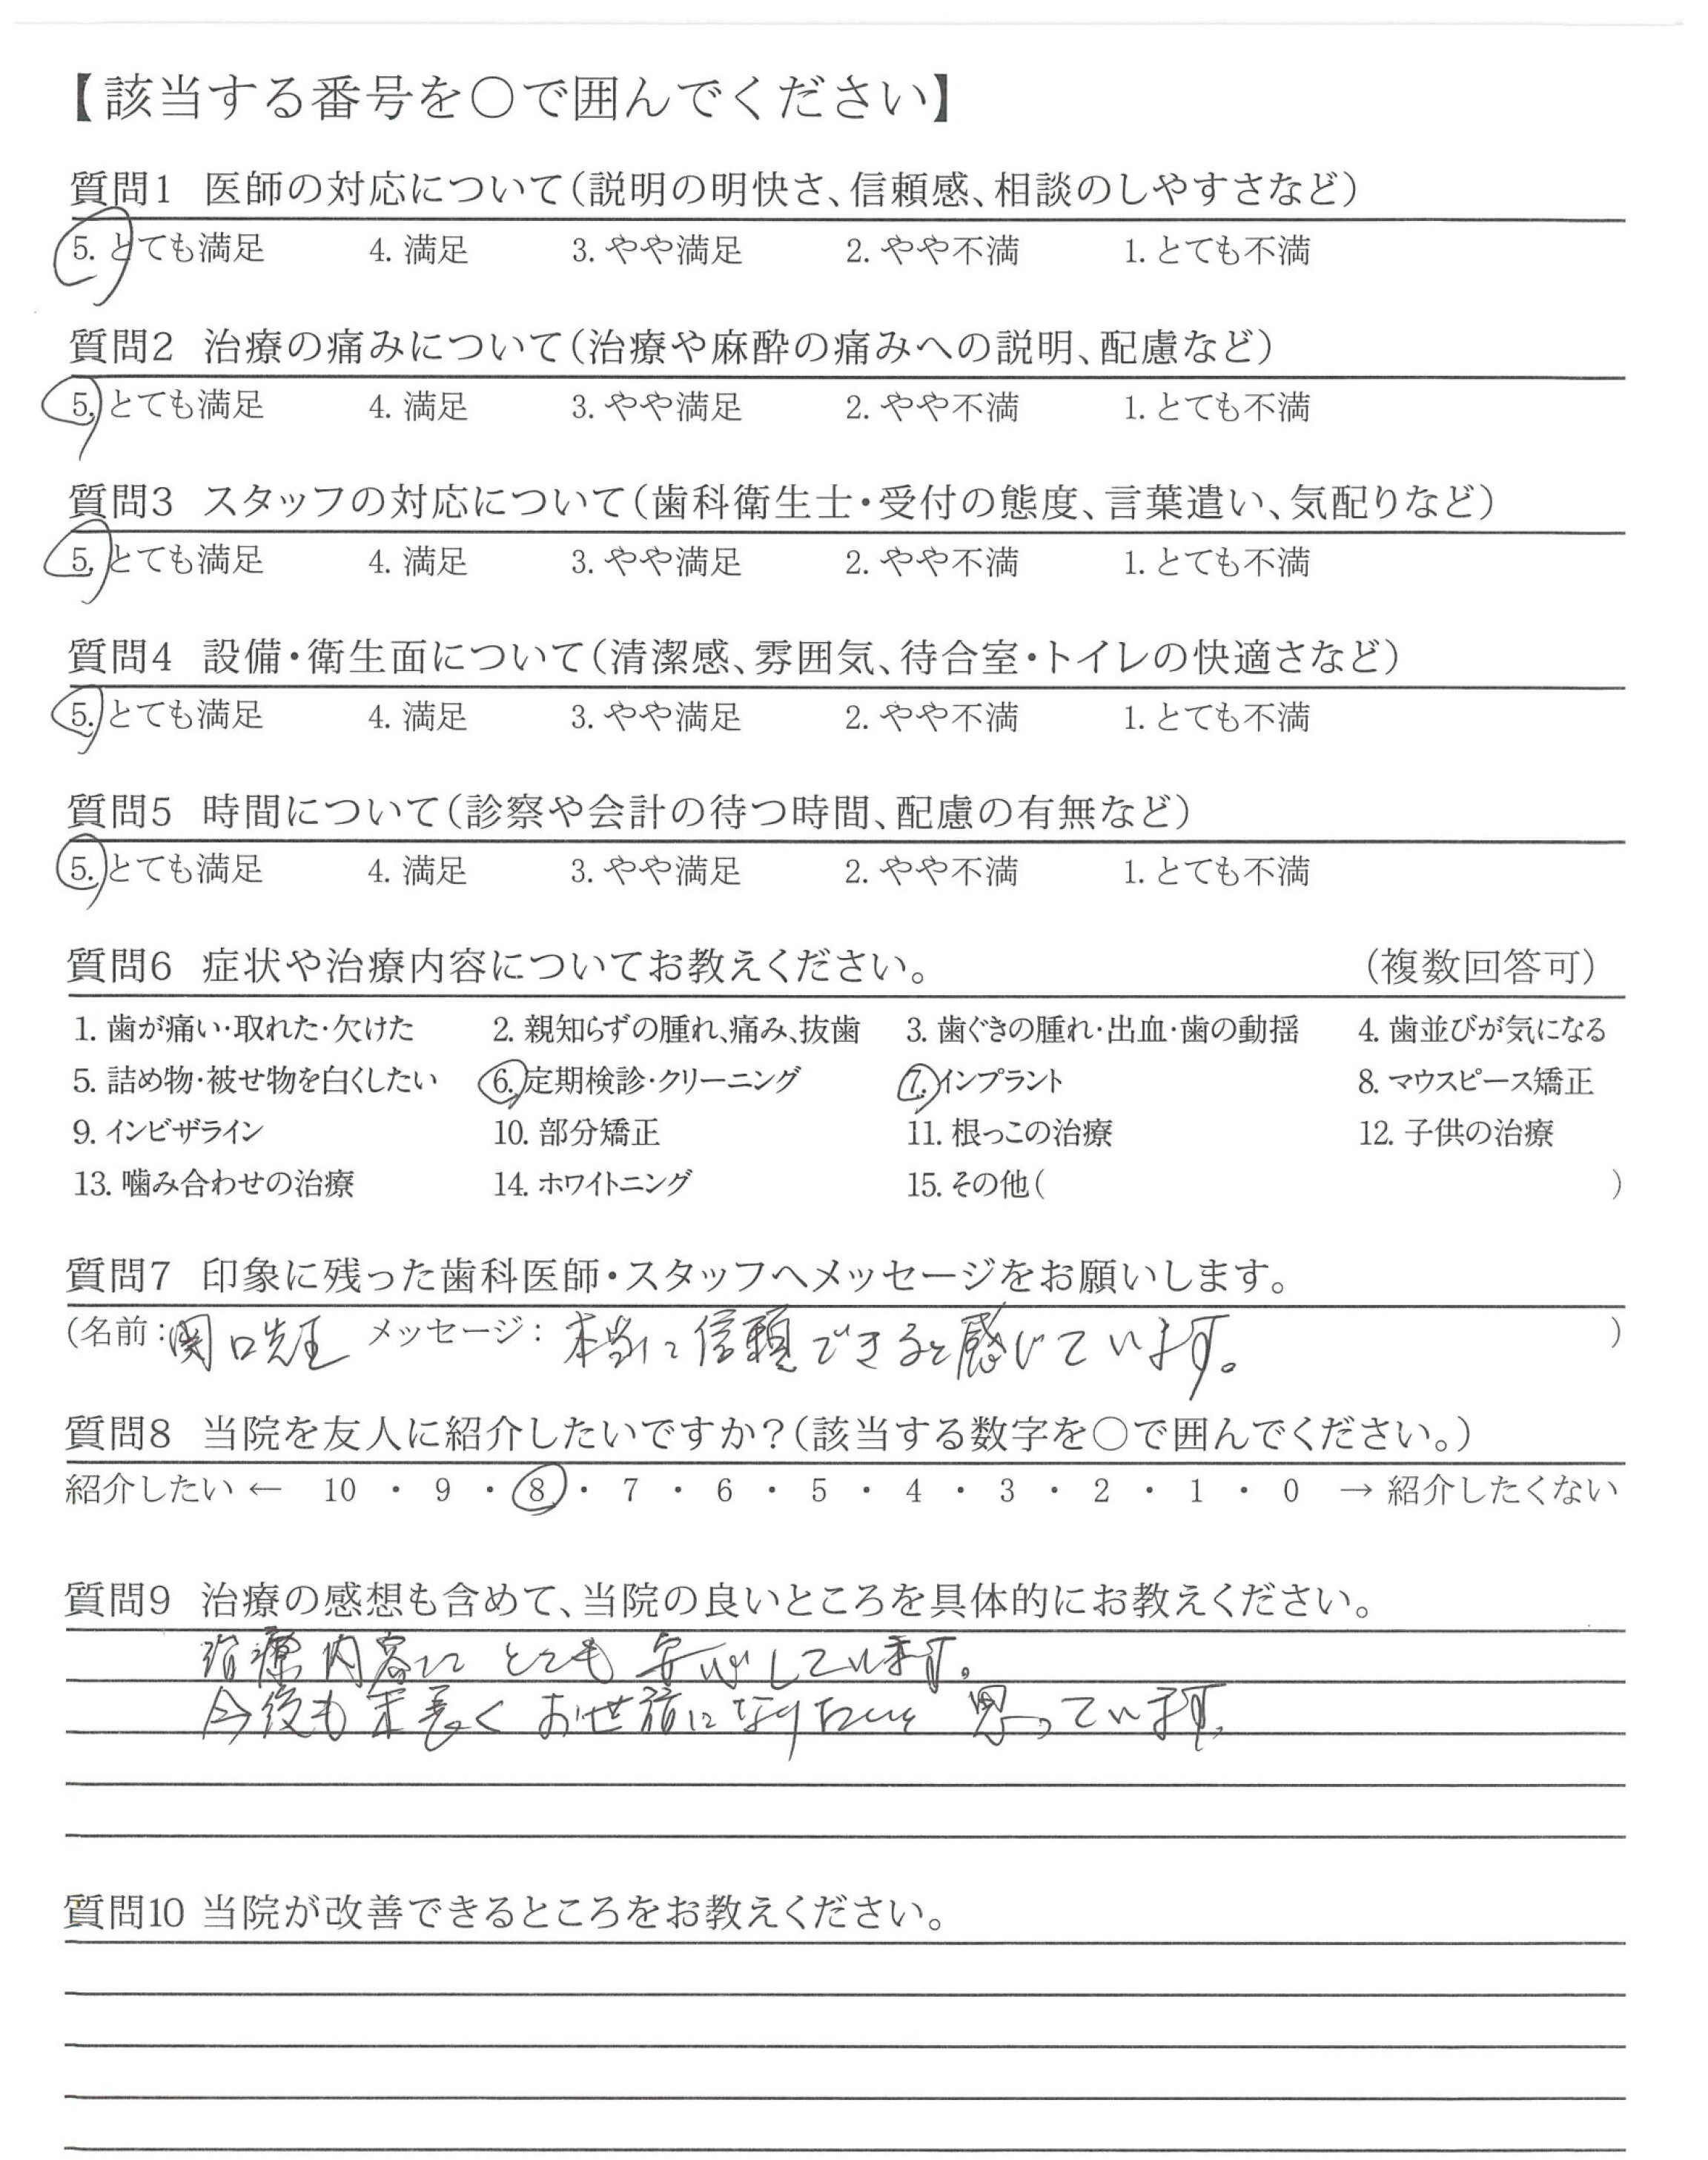 【該当する番号を○で囲んでください】
質問1 医師の対応について（説明の明快さ、信頼感、相談のしやすさなど）
5. とても満足 4. 満足 3. やや満足 2. やや不満 1. とても不満
質問2 治療の痛みについて（治療や麻酔の痛みへの説明、配慮など）
5. とても満足 4. 満足 3. やや満足 2. やや不満 1. とても不満
質問3 スタッフの対応について（歯科衛生士・受付の態度、言葉遣い、気配りなど）
5. とても満足 4. 満足 3. やや満足 2. やや不満 1. とても不満
質問4 設備・衛生面について（清潔感、雰囲気、待合室・トイレの快適さなど）
5. とても満足 4. 満足 3. やや満足 2. やや不満 1. とても不満
質問5 時間について（診察や会計の待つ時間、配慮の有無など）
5. とても満足 4. 満足 3. やや満足 2. やや不満 1. とても不満
質問6 症状や治療内容についてお教えください。 （複数回答可）
1. 歯が痛い・取れた・欠けた 2. 親知らずの腫れ、痛み、抜歯 3. 歯ぐきの腫れ・出血・歯の動揺 4. 歯並びが気になる
5. 詰め物・被せ物を白くしたい 6. 定期検診・クリーニング 7. インプラント 8. マウスピース矯正
9. インビザライン 10. 部分矯正 11. 根っこの治療 12. 子供の治療
13. 噛み合わせの治療 14. ホワイトニング 15. その他（ ）
質問7 印象に残った歯科医師・スタッフへメッセージをお願いします。
（名前：関口先生 メッセージ：本当に信頼できると感じています。 ）
質問8 当院を友人に紹介したいですか？（該当する数字を○で囲んでください。）
紹介したい ← 10 ・ 9 ・ 8 ・ 7 ・ 6 ・ 5 ・ 4 ・ 3 ・ 2 ・ 1 ・ 0 → 紹介したくない
質問9 治療の感想も含めて、当院の良いところを具体的にお教えください。
治療内容に とても 安心しています。
今後も末長く お世話になりたいと 思っています。
質問10 当院が改善できるところをお教えください。